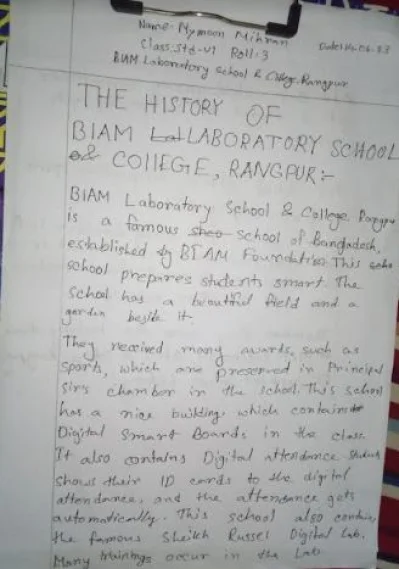 Name- Mymoon Mihran
Class: Std-VI Roll-3
BIAM Laboratory School & College, Rangpur
THE HISTORY OF
BIAM LABORATORY SCHOOL
& COllEGE, RANGPUR:-
BIAM Laboratory School & College Rangpur
is a famous school of Bangladesh,
established by BIAM Foundation. This
school prepares students smart. The
school has a beautiful field and a
garden beside it.
They received many awards, such as
Sports, which are preserved in Principal
Sir's chamber in the school. This school
has a nice building, which contains
Digital Smart Boards in the class.
It also contains Digital attendance. Students
shows their ID cards to the digital
attendance, and the attendance gets
automatically. This school also contains,
the famous Sheikh Russel Digital Lab.
Many trainings occur in the Lab.